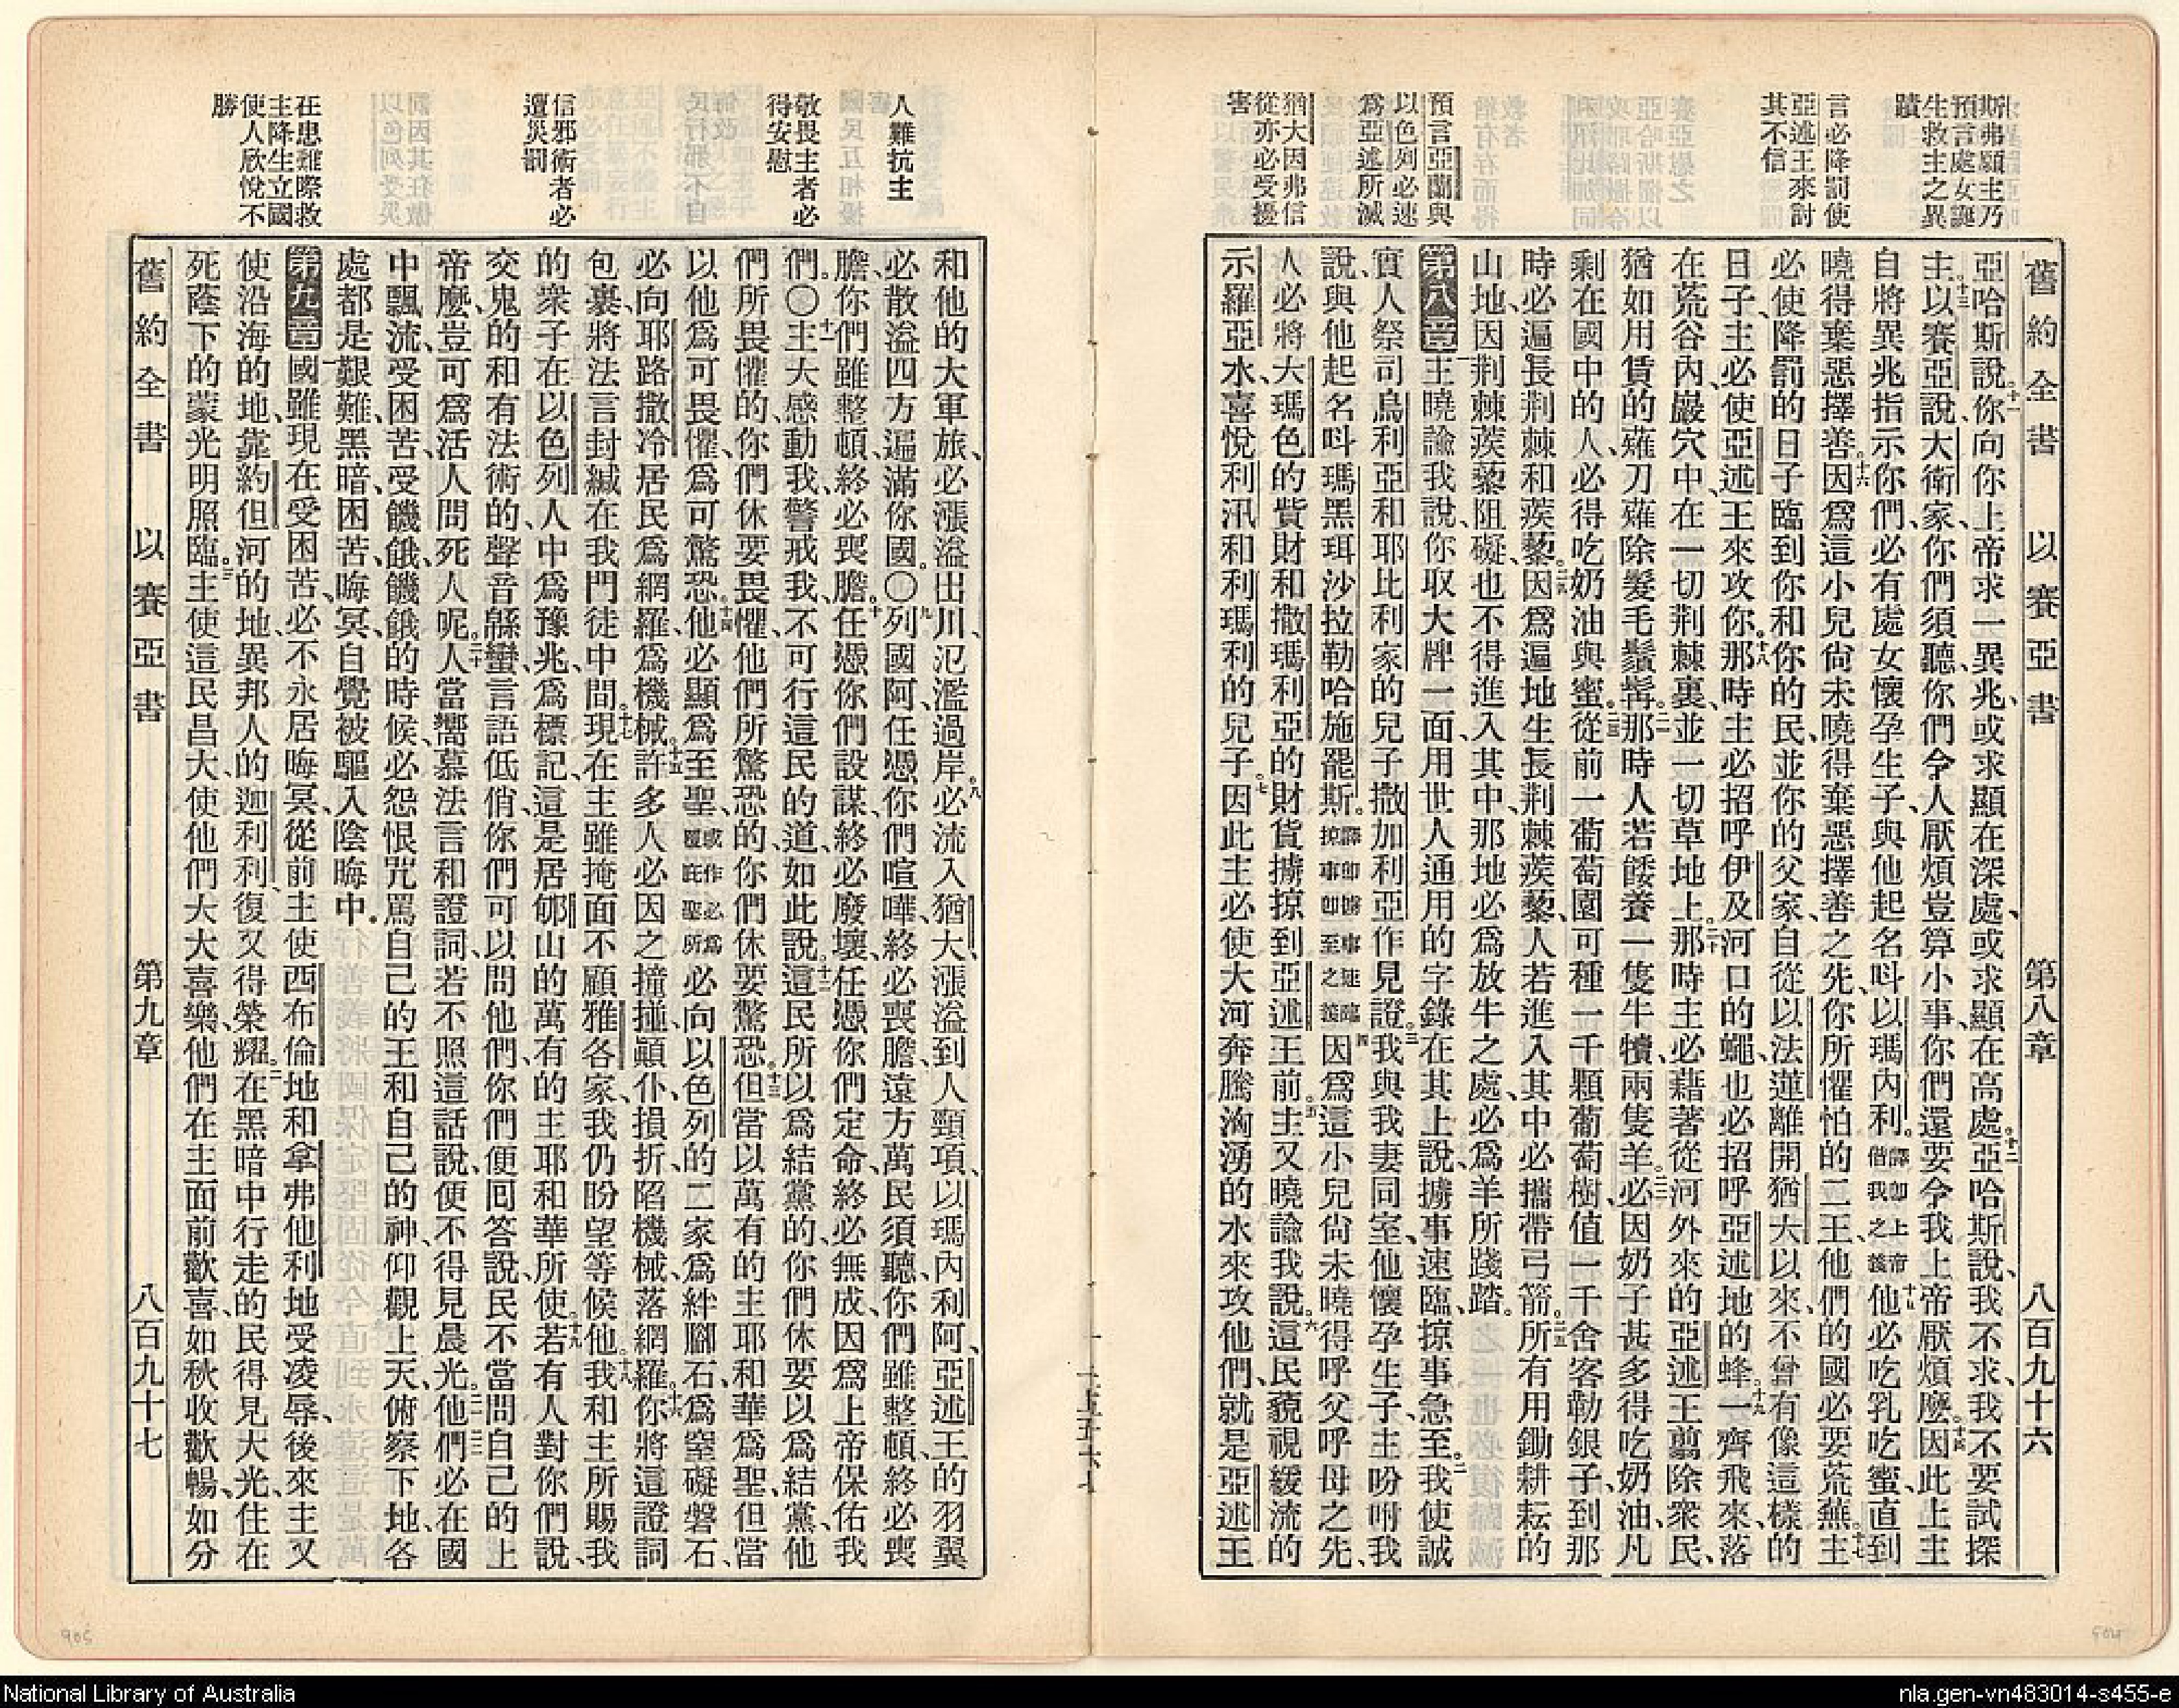 舊約全書 以賽亞書 第八章 八百九十六
斯弗願主乃
預言處女誕
生救主之異
蹟
言必降罰使
亞述王來討
其不信
預言亞蘭與
以色列必速
爲亞述所滅
猶大因弗信
從亦必受擾
害
亞哈斯說、十一你向你上帝求一異兆、或求顯在深處、或求顯在高處。十二亞哈斯說、我不求、我不要試探
主。十三以賽亞說、大衛家、你們須聽、你們令人厭煩豈算小事、你們還要令我上帝厭煩麼。十四因此上主
自將異兆指示你們、必有處女懷孕生子、與他起名呌以瑪內利。譯卽上帝偕我之義十五他必吃乳吃蜜、直到
曉得棄惡擇善。十六因爲這小兒尙未曉得棄惡擇善之先、你所懼怕的二王、他們的國必要荒蕪。十七主
必使降罰的日子臨到你和你的民、並你的父家、自從以法蓮離開猶大以來、不曾有像這樣的
日子、主必使亞述王來攻你。十八那時主必招呼伊及河口的蠅、也必招呼亞述地的蜂。十九一齊飛來、落
在荒谷內、巖穴中、在一切荆棘裏、並一切草地上。二十那時主必藉著從河外來的亞述王翦除衆民、
猶如用賃的薙刀薙除髮毛鬚髯。二一那時人若餧養一隻牛犢、兩隻羊。二二必因奶子甚多得吃奶油、凡
剩在國中的人、必得吃奶油與蜜。二三從前一葡萄園可種一千顆葡萄樹、值一千舍客勒銀子、到那
時必遍長荆棘和蒺藜。二四因爲遍地生長荆棘蒺藜、人若進入其中必攜帶弓箭。二五所有用鋤耕耘的
山地、因荆棘蒺藜阻礙、也不得進入其中、那地必爲放牛之處、必爲羊所踐踏。
第八章 一主曉諭我說、你取大牌一面、用世人通用的字錄在其上說、擄事速臨、掠事急至。二我使誠
實人祭司烏利亞和耶比利家的兒子撒加利亞作見證。三我與我妻同室、他懷孕生子、主吩咐我
說、與他起名呌瑪黑珥沙拉勒哈施罷斯。譯卽擄事速臨掠事卽至之義四因爲這小兒尙未曉得呼父呼母之先、
人必將大瑪色的貲財和撒瑪利亞的財貨擄掠到亞述王前。五主又曉諭我說。六這民藐視緩流的
示羅亞水、喜悅利汛和利瑪利的兒子。七因此主必使大河奔騰洶湧的水來攻他們、就是亞述王
人難抗主
敬畏主者必
得安慰
信邪術者必
遭災罰
在患難際救
主降生立國
使人欣悅不
勝
和他的大軍旅、必漲溢出川、氾濫過岸。八必流入猶大、漲溢到人頸項、以瑪內利阿、亞述王的羽翼
必散溢四方、遍滿你國。〇九列國阿、任憑你們喧嘩、終必喪膽、遠方萬民須聽、你們雖整頓、終必喪
膽、你們雖整頓、終必喪膽。十任憑你們設謀、終必廢壞、任憑你們定命、終必無成、因爲上帝保佑我
們。〇十一主大感動我、警戒我、不可行這民的道、如此說。十二這民所以爲結黨的、你們休要以爲結黨、他
們所畏懼的、你們休要畏懼、他們所驚恐的、你們休要驚恐。十三但當以萬有的主耶和華爲聖、但當
以他爲可畏懼、爲可驚恐。十四他必顯爲至聖、或作必爲聖所必向以色列的二家爲絆腳石、爲窒礙磐石、
必向耶路撒冷居民爲網羅、爲機械。十五許多人必因之撞掽、顚仆、損折、陷機械、落網羅。十六你將這證詞
包裹、將法言封緘在我門徒中間。十七現在主雖掩面不顧雅各家、我仍盼望等候他。十八我和主所賜我
的衆子、在以色列人中、爲豫兆、爲標記、這是居郇山的萬有的主耶和華所使。十九若有人對你們說、
交鬼的和有法術的、聲音緜蠻、言語低俏、你們可以問他們、你們便回答說、民不當問自己的上
帝麼、豈可爲活人問死人呢。二十人當嚮慕法言和證詞、若不照這話說、便不得見晨光。二一他們必在國
中飄流、受困苦、受饑餓、饑餓的時候必怨恨咒罵自己的王和自己的神、仰觀上天。二二俯察下地、各
處都是艱難、黑暗、困苦、晦冥、自覺被驅入陰晦中。
第九章 一國雖現在受困苦、必不永居晦冥、從前主使西布倫地和拿弗他利地受凌辱、後來主又
使沿海的地、靠約但河的地、異邦人的迦利利、復又得榮耀。二在黑暗中行走的民得見大光、住在
死蔭下的蒙光明照臨。三主使這民昌大、使他們大大喜樂、他們在主面前歡喜、如秋收歡暢、如分
舊約全書 以賽亞書 第九章 八百九十七
905
904
National Library of Australia
nla.gen-vn483014-s455-e